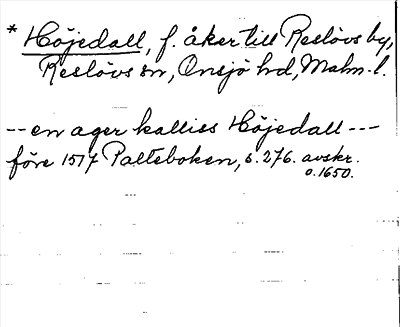 * Höjedall, f. åker till Reslövs by,
Reslövs sn, Onsjö hd, Malm. l.
-- en ager kalliss Höjedall ---
före 1517 Palteboken, s. 276. avskr.
o. 1650.